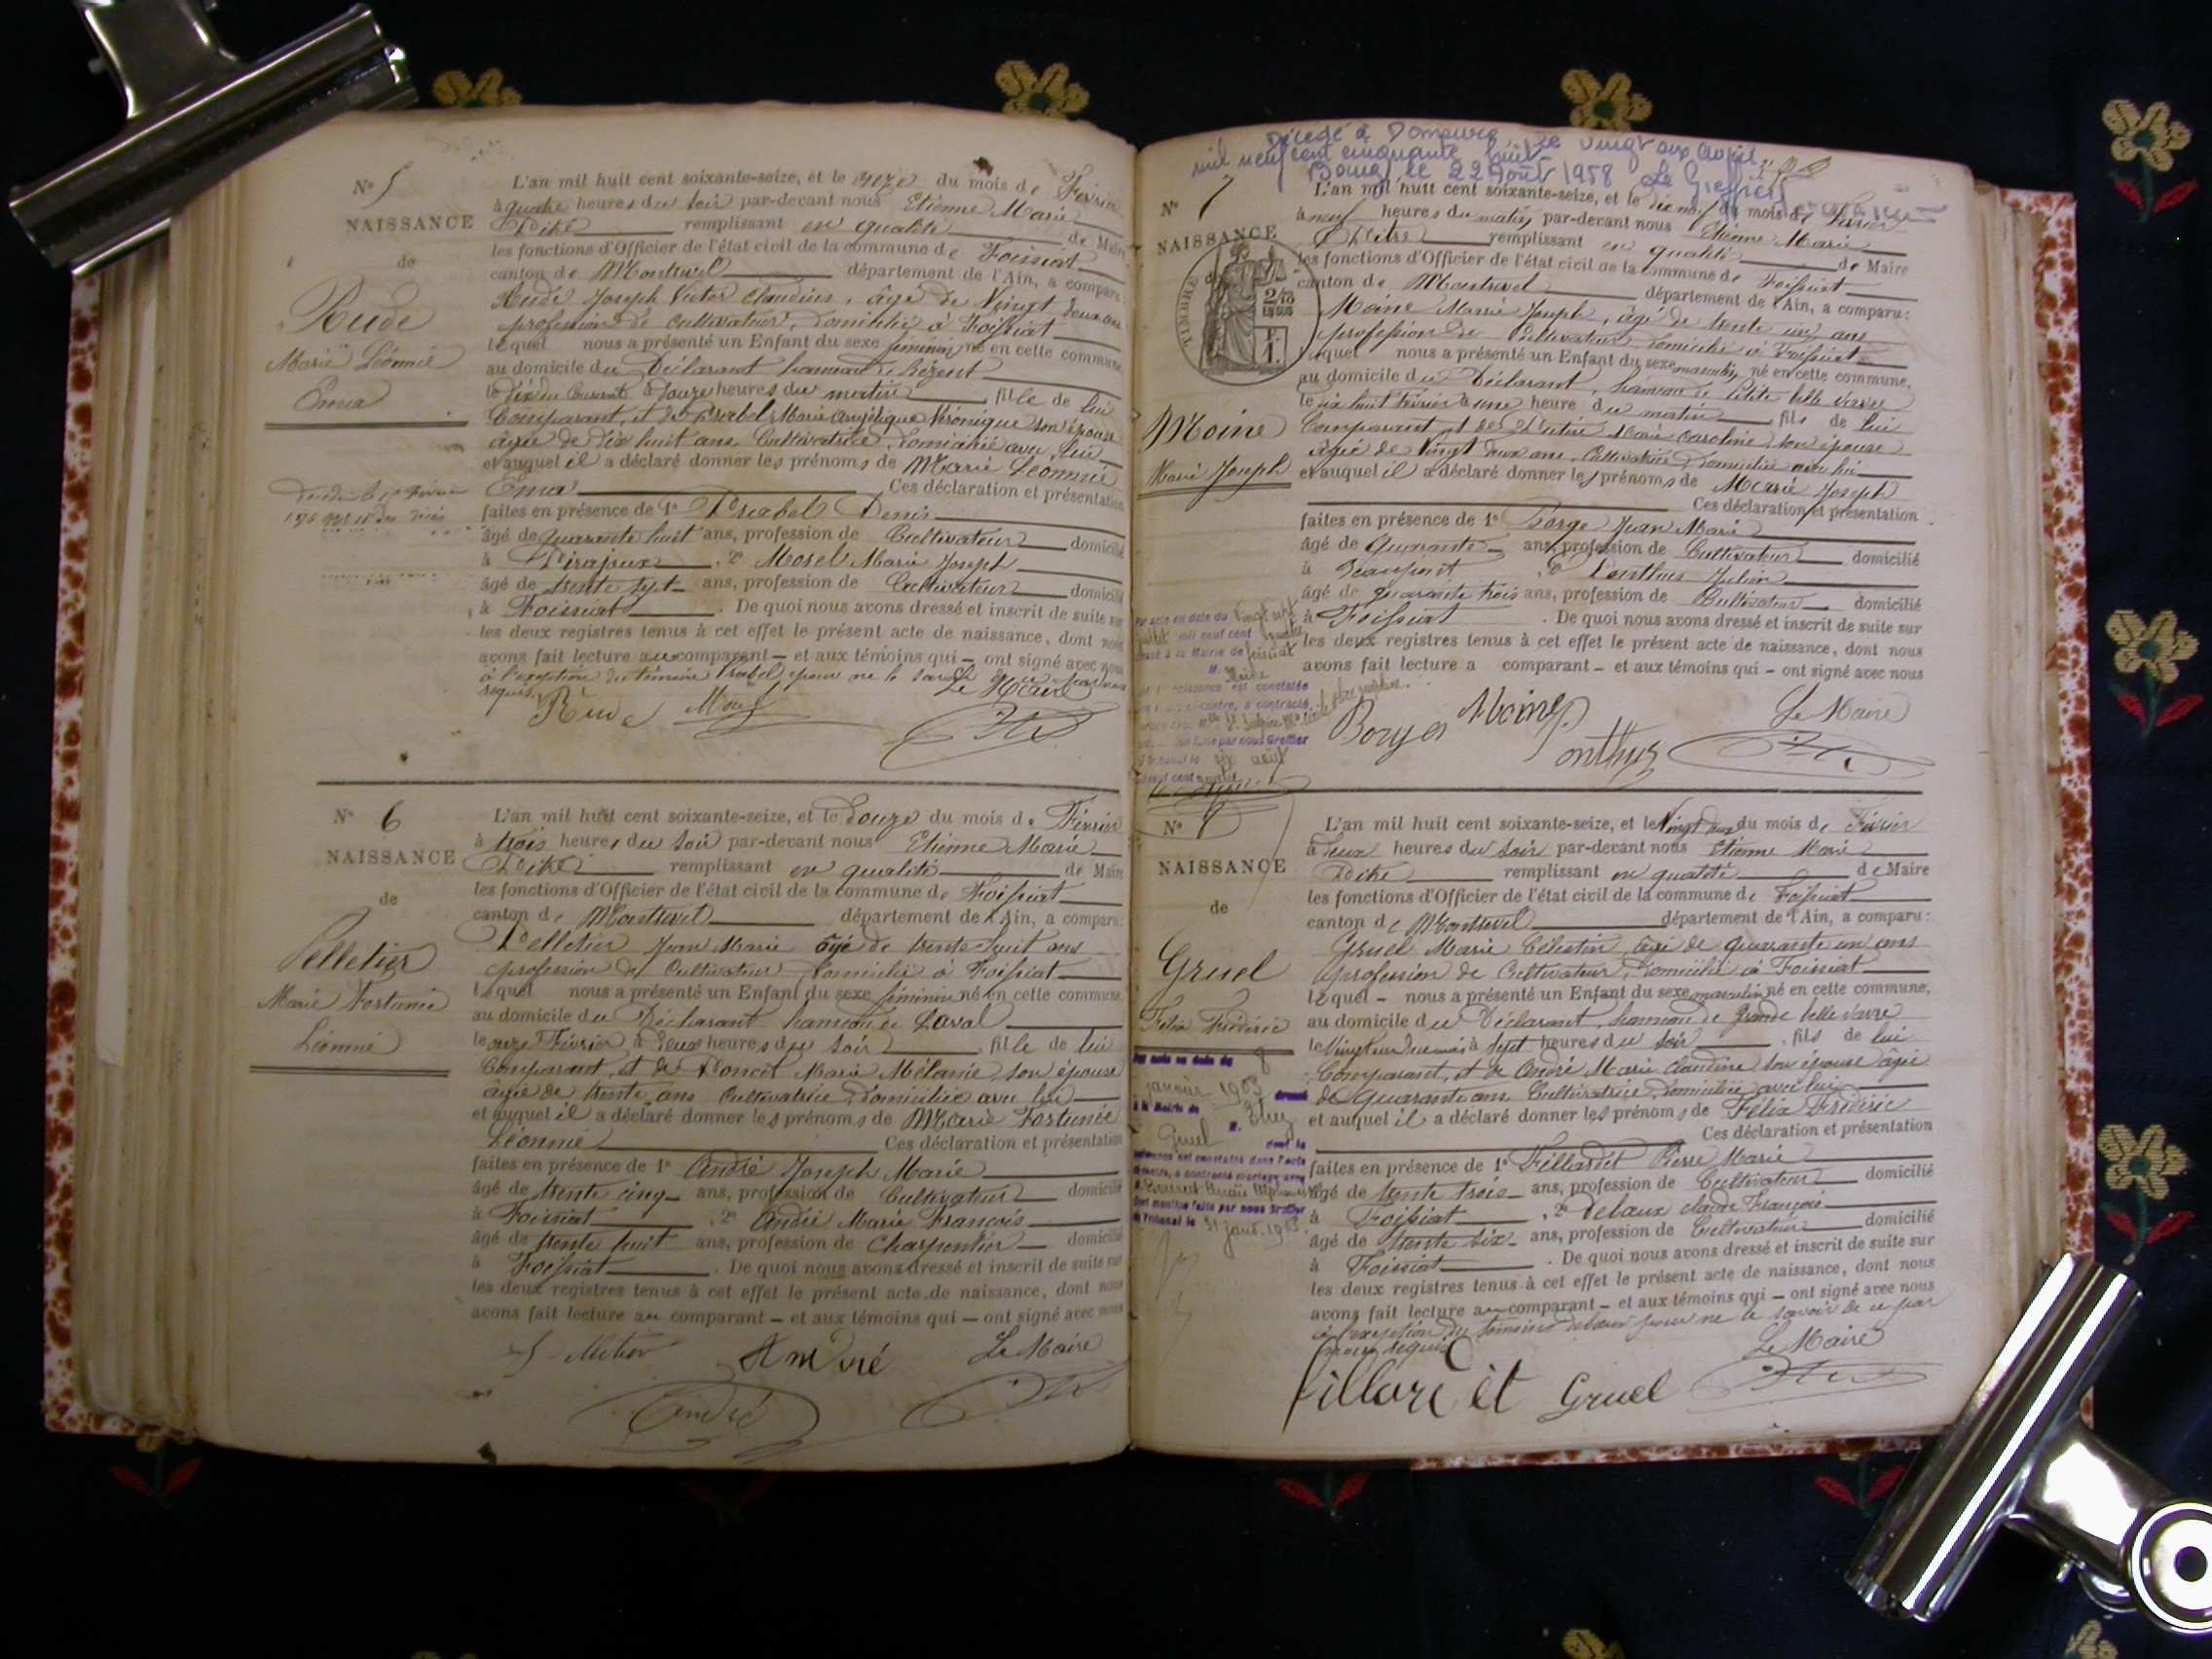 N° 5
NAISSANCE
de
Rude
Marie Léonnie
Ema
L'an mil huit cent soixante-seize, et le onze du mois de Février
à quatre heures du soir par-devant nous Etienne Marie
remplissant en qualité de Maire
les fonctions d'Officier de l'état civil de la commune de Foissiat
canton de Montrevel département de l'Ain, a comparu:
Rude Joseph Victor Claudius, âgé de Vingt deux ans
profession de Cultivateur, domicilié à Foissiat
lequel nous a présenté un Enfant du sexe féminin né en cette commune,
au domicile du Déclarant hameau
le dix du Courant à douze heures du matin fille de lui
Comparant, et de Marie Angélique Véronique son épouse
âgée de dix huit ans, Cultivatrice, domiciliée avec lui
et auquel il a déclaré donner les prénoms de Marie Léonnie
Ema Ces déclaration et présentation
faites en présence de 1° Denis
âgé de quarante huit ans, profession de Cultivateur domicilié
à 2° Morel Marie Joseph
âgé de trente sept ans, profession de Cultivateur domicilié
à Foissiat. De quoi nous avons dressé et inscrit de suite sur
les deux registres tenus à cet effet le présent acte de naissance, dont nous
avons fait lecture au comparant – et aux témoins qui – ont signé avec nous
à l'exception du témoin pour ne le savoir de ce par nous
requis. Le Maire
Rude Morel
N° 6
NAISSANCE
de
Pelletier
Marie Fortunée
Léonnie
L'an mil huit cent soixante-seize, et le douze du mois de Février
à trois heures du soir par-devant nous Etienne Marie
remplissant en qualité de Maire
les fonctions d'Officier de l'état civil de la commune de Foissiat
canton de Montrevel département de l'Ain, a comparu:
Pelletier Jean Marie âgé de trente huit ans
profession de Cultivateur domicilié à Foissiat
lequel nous a présenté un Enfant du sexe féminin né en cette commune,
au domicile du Déclarant hameau de Laval
le onze Février à deux heures du soir fille de lui
Comparant, et de Poncet Marie Mélanie, son épouse
âgée de trente ans Cultivatrice domiciliée avec lui
et auquel il a déclaré donner les prénoms de Marie Fortunée
Léonnie Ces déclaration et présentation
faites en présence de 1° André Joseph Marie
âgé de trente cinq ans, profession de Cultivateur domicilié
à Foissiat, 2° André Marie François
âgé de trente huit ans, profession de Charpentier domicilié
à Foissiat. De quoi nous avons dressé et inscrit de suite sur
les deux registres tenus à cet effet le présent acte de naissance, dont nous
avons fait lecture au comparant – et aux témoins qui – ont signé avec nous
André Le Maire
André
Décédé à le vingt six avril
mil neuf cent cinquante huit
Bourg, le 22 Août 1958 Le Greffier
N° 7
NAISSANCE
de
TIMBRE
Moine
Marie Joseph
L'an mil huit cent soixante-seize, et le dix neuf du mois de Février
à neuf heures du matin par-devant nous Etienne Marie
remplissant en qualité de Maire
les fonctions d'Officier de l'état civil de la commune de Foissiat
canton de Montrevel département de l'Ain, a comparu:
Moine Marie Joseph, âgé de trente un ans
profession de Cultivateur domicilié à Foissiat
lequel nous a présenté un Enfant du sexe masculin, né en cette commune,
au domicile du Déclarant, hameau de Petite
le dix huit Février à une heure du matin fils de lui
Comparant et de Marie Caroline, son épouse
âgée de Vingt deux ans, Cultivatrice domiciliée avec lui
et auquel il a déclaré donner les prénoms de Marie Joseph
Ces déclaration et présentation
faites en présence de 1° Jean Marie
âgé de Quarante ans, profession de Cultivateur domicilié
à 2° Ponthus Julien
âgé de quarante trois ans, profession de Cultivateur domicilié
à Foissiat. De quoi nous avons dressé et inscrit de suite sur
les deux registres tenus à cet effet le présent acte de naissance, dont nous
avons fait lecture a comparant – et aux témoins qui – ont signé avec nous
Moine Le Maire
Ponthus
N° 8
NAISSANCE
de
Gruel
Félix Frédéric
janvier 1903
Gruel
31 janv. 1903
L'an mil huit cent soixante-seize, et le Vingt deux du mois de Février
à deux heures du soir par-devant nous Etienne Marie
remplissant en qualité de Maire
les fonctions d'Officier de l'état civil de la commune de Foissiat
canton de Montrevel département de l'Ain, a comparu:
Gruel Marie Célestin, âgé de quarante un ans
profession de Cultivateur, domicilié à Foissiat
lequel – nous a présenté un Enfant du sexe masculin né en cette commune,
au domicile du Déclarant, hameau de Grande
à sept heures du soir fils de lui
Comparant, et de André Marie Claudine son épouse âgée
de quarante ans, Cultivatrice, domiciliée avec lui
et auquel il a déclaré donner les prénoms de Félix Frédéric
Ces déclaration et présentation
faites en présence de 1° Fillardet Pierre Marie
âgé de trente trois ans, profession de Cultivateur domicilié
à Foissiat, 2° Debaux Claude François
âgé de trente six ans, profession de Cultivateur domicilié
à Foissiat. De quoi nous avons dressé et inscrit de suite sur
les deux registres tenus à cet effet le présent acte de naissance, dont nous
avons fait lecture au comparant – et aux témoins qui – ont signé avec nous
à l'exception du témoin debaux pour ne le savoir de ce par
nous requis Le Maire
fillardet Gruel